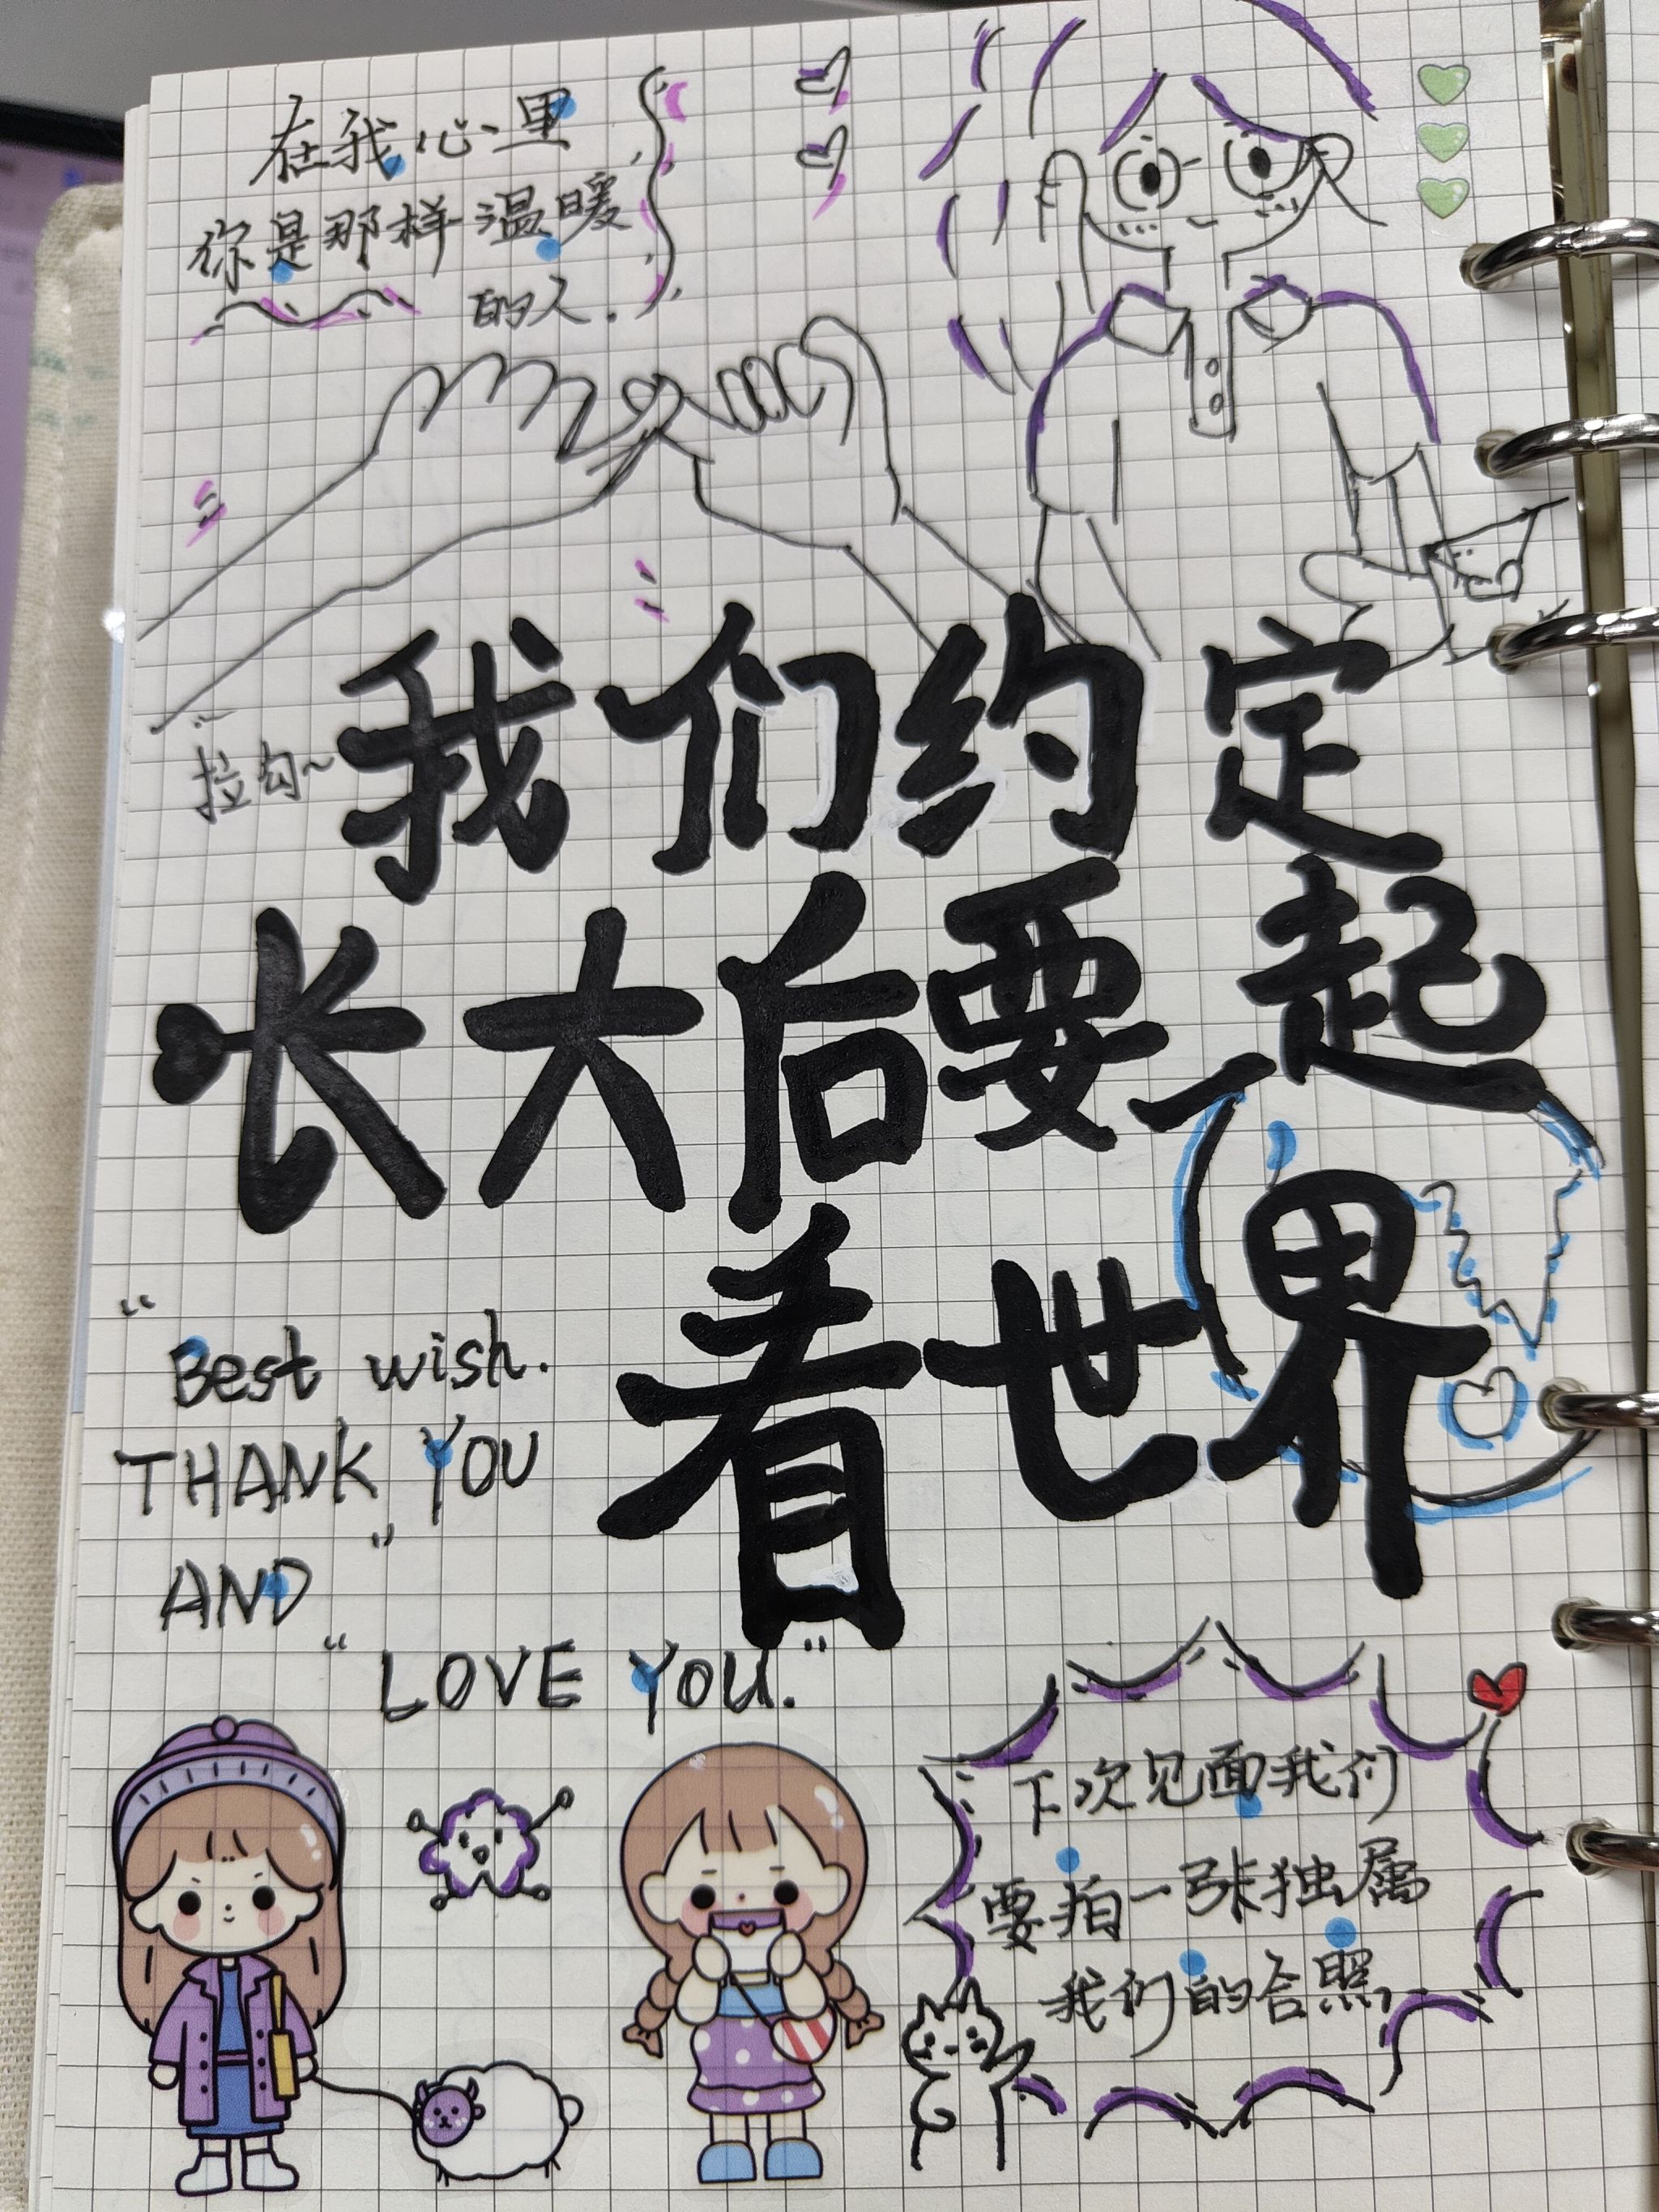 在我心里
你是那样温暖
的人.
拉勾~
我们约定
长大后要一起
看世界
"Best wish.
THANK YOU"
AND
"LOVE YOU."
下次见面我们
要拍一张独属
我们的合照